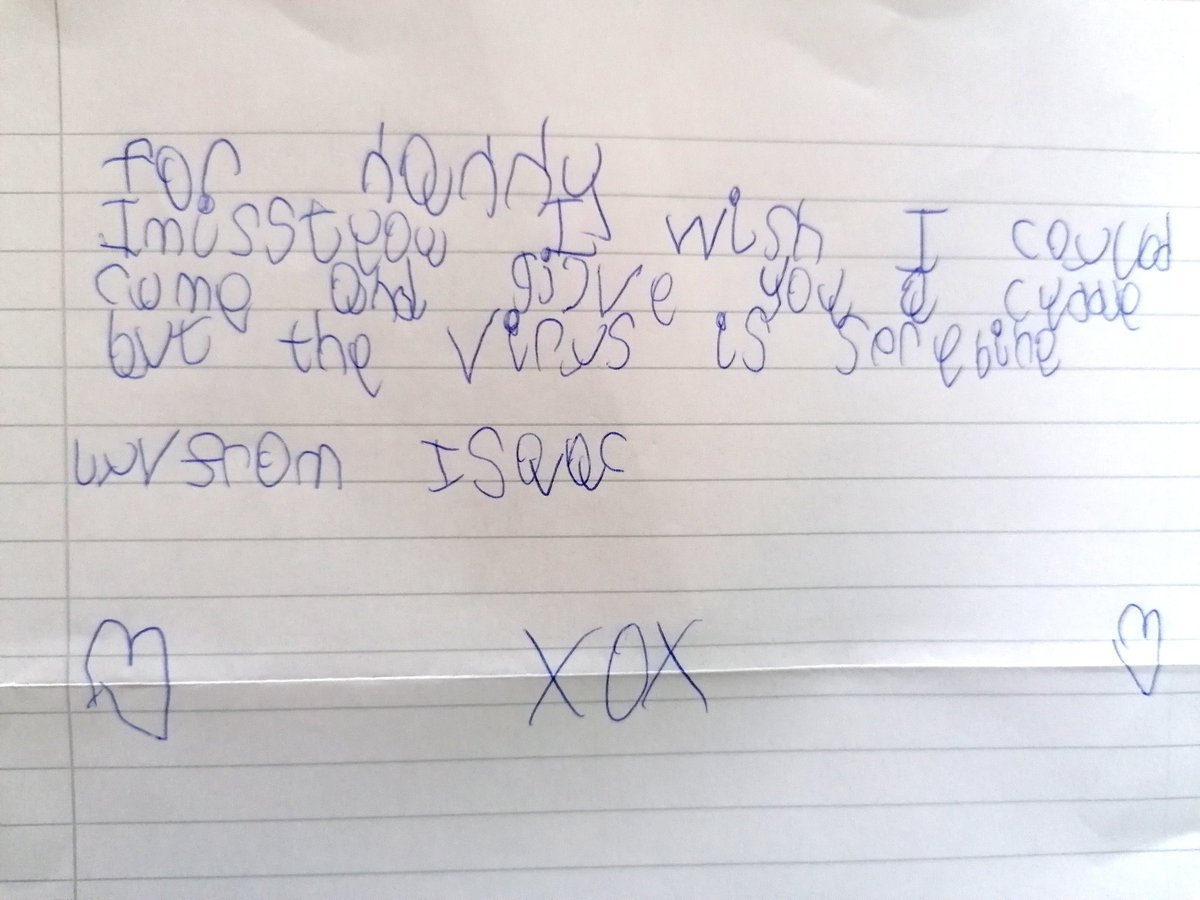 for nanny
I misst you I wish I could
come and give you a cudde
but the virus is sorebine
luv from Isaac
XOX